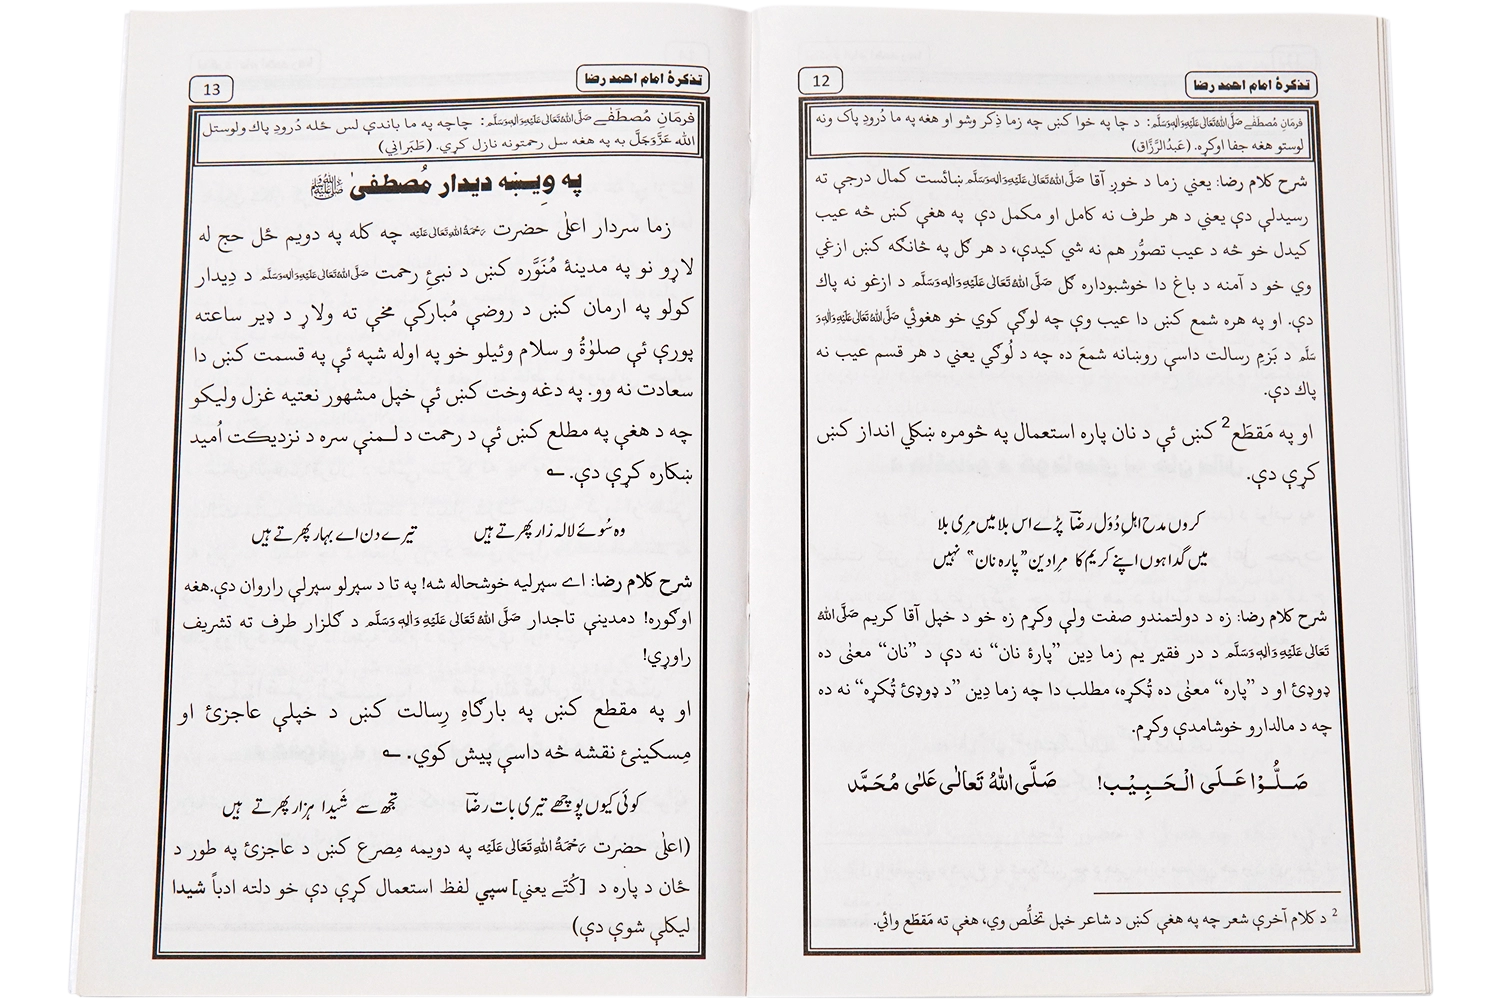 تذكرهٔ امام احمد رضا
12
فرمانِ مُصطفٰے صَلَّی اللهُ تَعَالٰی عَلَیْهِ وَاٰلِهٖ وَسَلَّم: د چا په خوا کښ چه زما ذِکر وشو او هغه په ما دُرودِ پاک ونه
لوستو هغه جفا اوکړه. (عَبدُالرَّزَّاق)
شرح کلام رضا: يعني زما د خوږ آقا صَلَّی اللهُ تَعَالٰی عَلَیْهِ وَاٰلِهٖ وَسَلَّم ښائست کمال درجې ته
رسيدلې دې يعني د هر طرف نه کامل او مکمل دې په هغې کښ څه عيب
کيدل خو څه د عيب تصوُّر هم نه شي کيدې، د هر ګل په څانګه کښ ازغې
وي خو د آمنه د باغ دا خوشبوداره ګل صَلَّی اللهُ تَعَالٰی عَلَیْهِ وَاٰلِهٖ وَسَلَّم د ازغو نه پاك
دې. او په هره شمع کښ دا عيب وي چه لوګې کوي خو هغوئي صَلَّی اللهُ تَعَالٰی عَلَیْهِ وَاٰلِهٖ وَ
سَلَّم د بَزمِ رسالت داسې روښانه شمعَ ده چه د لُوګي يعني د هر قسم عيب نه
پاك دې.
او په مَقطَع2 کښ ئې د نان پاره استعمال په څومره ښکلي انداز کښ
کړې دې.
کروں مدح اہلِ دُوَل رضاؔ پڑے اس بلا میں مِری بلا
میں گدا ہوں اپنے کریم کا مِرا دین "پارہ نان" نہیں
شرح کلام رضا: زه د دولتمندو صفت ولې وکړم زه خو د خپل آقا کريم صَلَّی اللهُ
تَعَالٰی عَلَیْهِ وَاٰلِهٖ وَسَلَّم د در فقير يم زما دِين "پارهٔ نان" نه دې د "نان" معنٰی ده
ډوډئ او د "پاره" معنٰی ده ټُکړه، مطلب دا چه زما دِين "د ډوډئ ټُکړه" نه ده
چه د مالدارو خوشامدې وکړم.
صَلُّوْا عَلَی الْحَبِیْب! صَلَّی اللهُ تَعَالٰی عَلٰی مُحَمَّد
2 د کلام آخري شعر چه په هغې کښ د شاعر خپل تخلُّص وي، هغې ته مَقطَع وائي.
تذكرهٔ امام احمد رضا
13
فرمانِ مُصطَفٰے صَلَّی اللهُ تَعَالٰی عَلَیْهِ وَاٰلِهٖ وَسَلَّم: چاچه په ما باندې لس ځله دُرودِ پاك ولوستل
الله عَزَّوَجَلَّ به په هغه سل رحمتونه نازل کړي. (طَبَراني)
په وِيښه ديدار مُصطفیٰ ﷺ
زما سردار اعلٰی حضرت رَحْمَةُ اللهِ تَعَالٰی عَلَیْه چه کله په دويم ځل حج له
لاړو نو په مدينهٔ مُنَوَّره کښ د نبئِ رحمت صَلَّی اللهُ تَعَالٰی عَلَیْهِ وَاٰلِهٖ وَسَلَّم د دِيدار
کولو په ارمان کښ د روضې مُبارکې مخې ته ولاړ د ډير ساعته
پورې ئې صلوٰةُ و سلام وئيلو خو په اوله شپه ئې په قسمت کښ دا
سعادت نه وو. په دغه وخت کښ ئې خپل مشهور نعتيه غزل وليکو
چه د هغې په مطلع کښ ئې د رحمت د لـمنې سره د نزديکت اُميد
ښکاره کړې دې. ؎
وہ سُوئے لالہ زار پھرتے ہیں تیرے دن اے بہار پھرتے ہیں
شرح کلام رضا: اے سپرليه خوشحاله شه! په تا د سپرلو سپرلې راروان دې.هغه
اوګوره! دمدينې تاجدار صَلَّی اللهُ تَعَالٰی عَلَیْهِ وَاٰلِهٖ وَسَلَّم د ګلزار طرف ته تشريف
راوړي!
او په مقطع کښ په بارګاهِ رِسالت کښ د خپلې عاجزئ او
مِسکينئ نقشه څه داسې پيش کوي. ؎
کوئی کیوں پوچھے تیری بات رضاؔ تجھ سے شَیدا ہزار پھرتے ہیں
(اعلٰی حضرت رَحْمَةُ اللهِ تَعَالٰی عَلَیْه په دويمه مِصرع کښ د عاجزئ په طور د
ځان د پاره د [کُتّے يعني] سپي لفظ استعمال کړې دې خو دلته ادباً شيدا
ليکلې شوې دې)